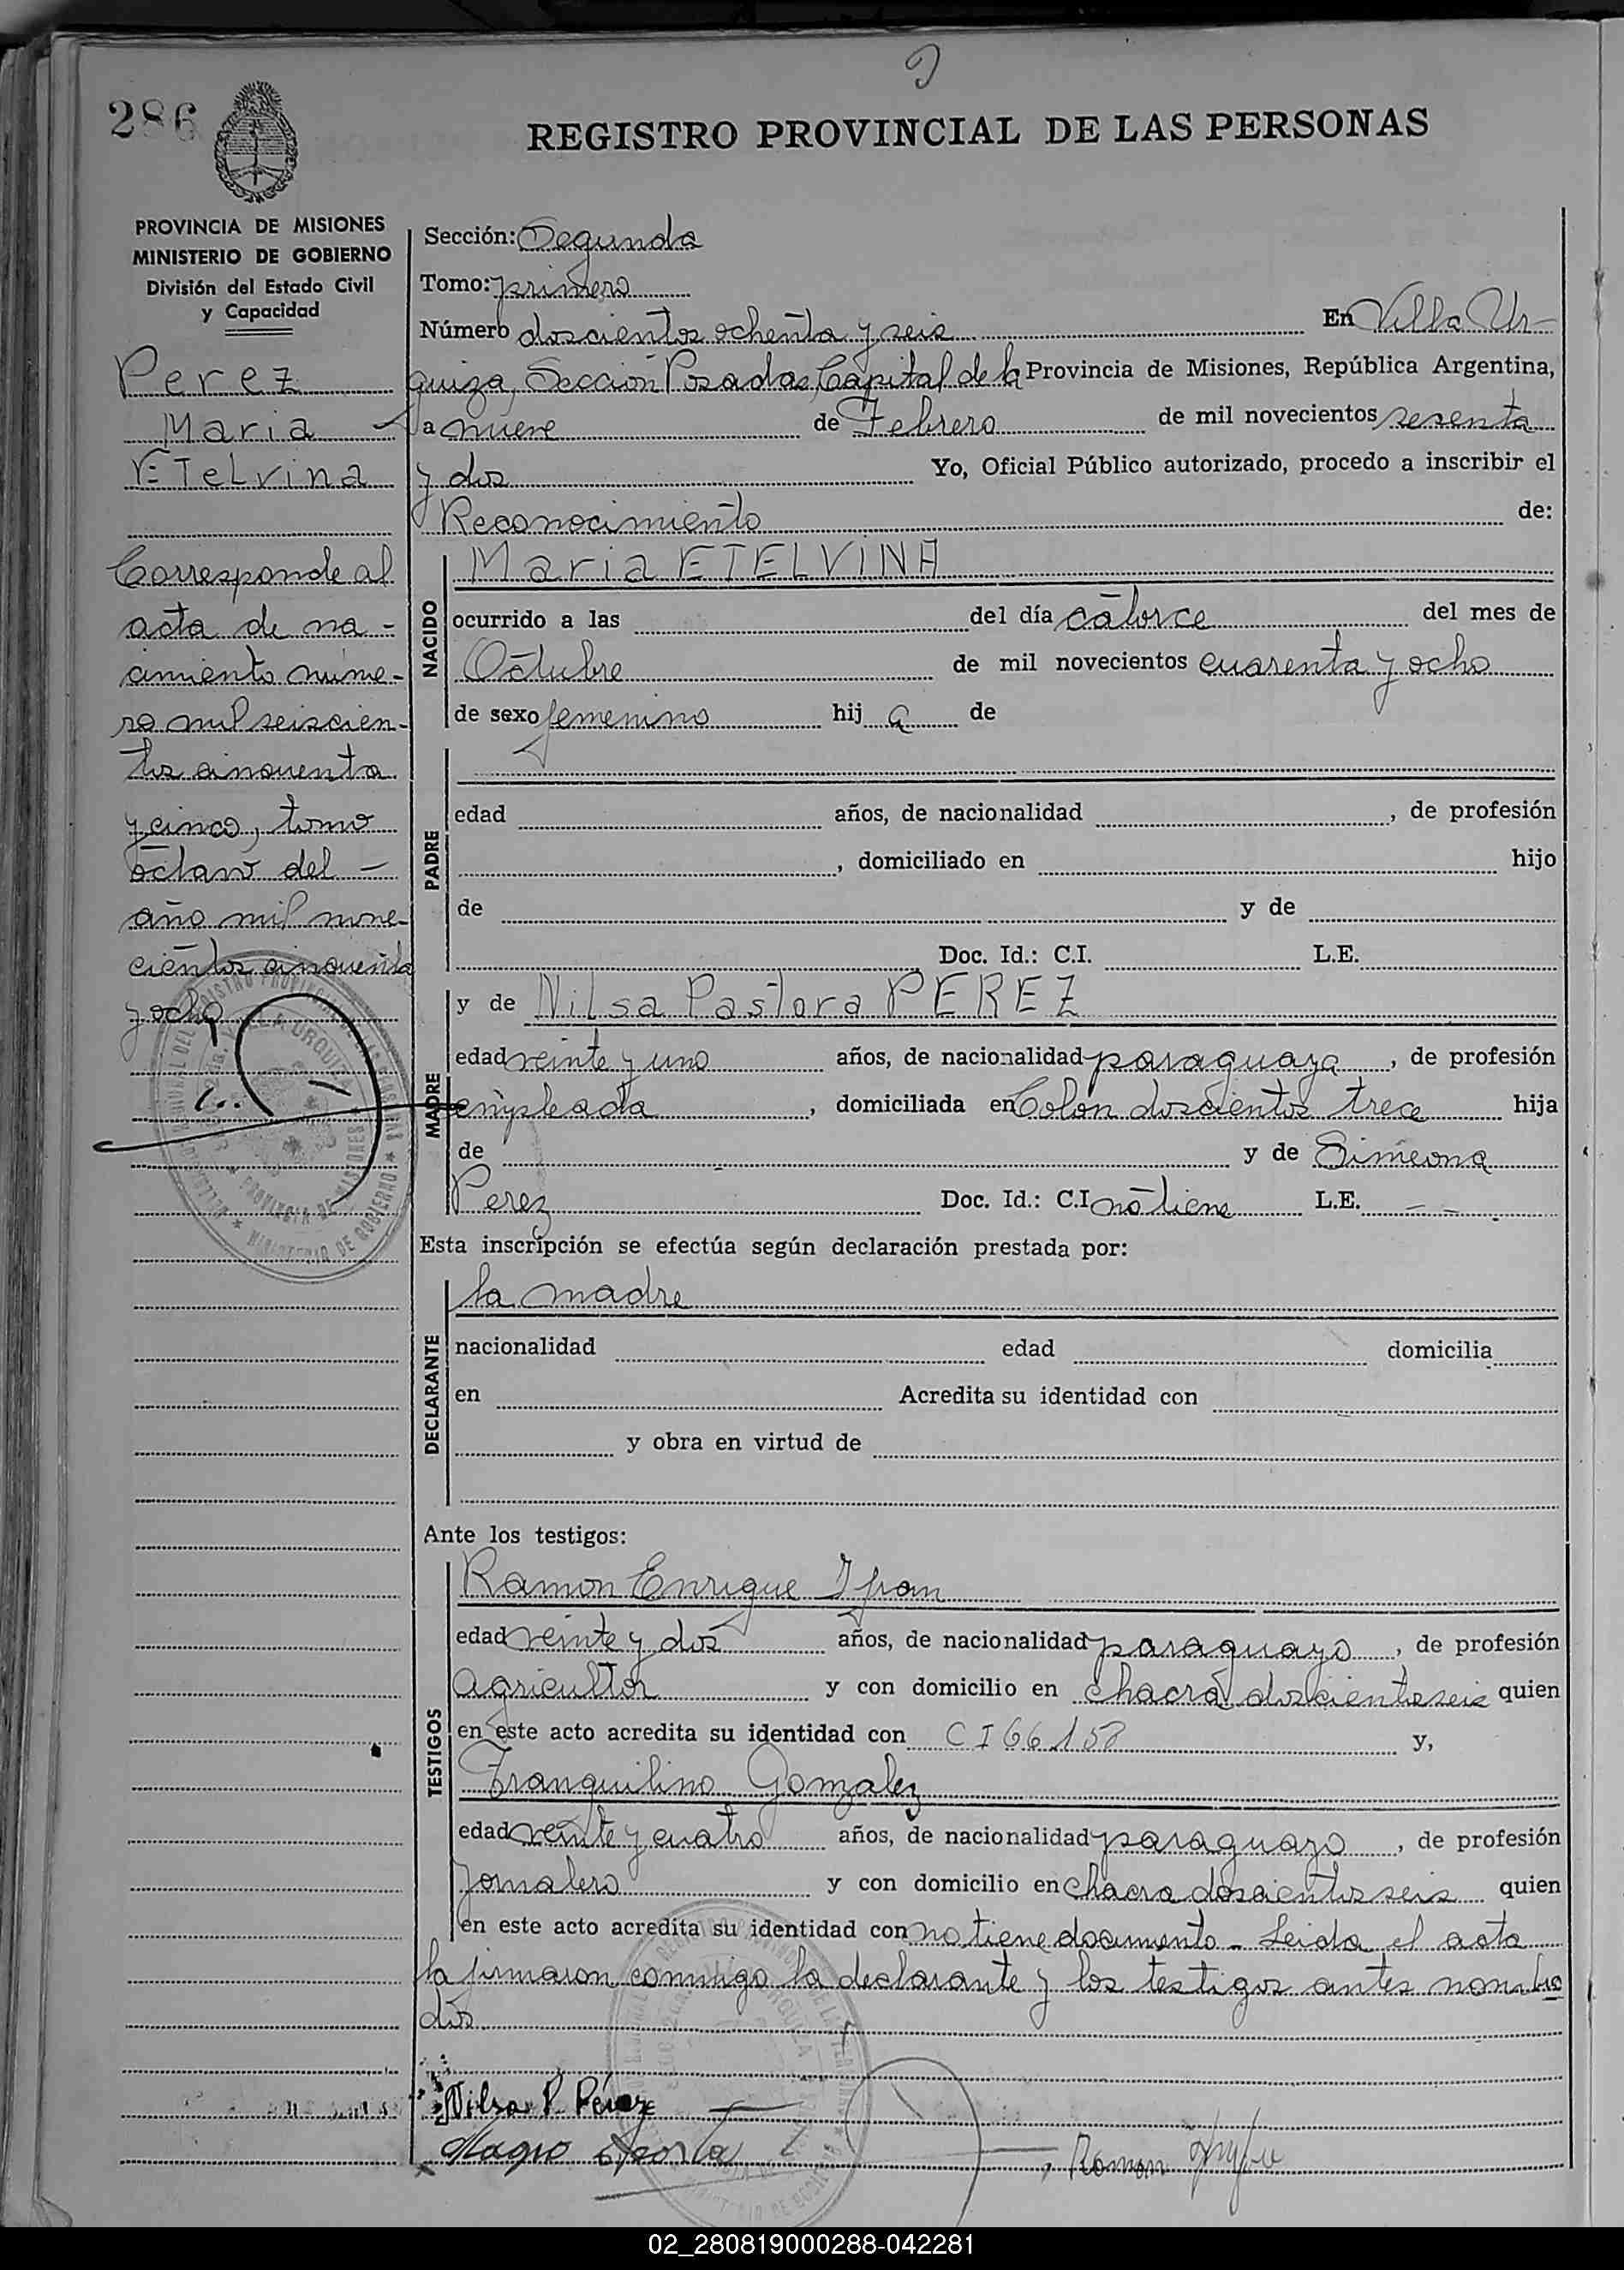 286
REGISTRO PROVINCIAL DE LAS PERSONAS
PROVINCIA DE MISIONES
MINISTERIO DE GOBIERNO
División del Estado Civil
y Capacidad
Perez
Maria
ETelvina
Corresponde al
acta de na-
cimiento núme-
ro mil seiscien-
tos cincuenta
y cinco, tomo
octavo del -
año mil nove-
cientos cincuenta
y ocho
Sección: Segunda
Tomo: primero
Número doscientos ochenta y seis En Villa Ur-
quiza, Sección Posadas, Capital de la Provincia de Misiones, República Argentina,
a nueve de Febrero de mil novecientos sesenta
y dos Yo, Oficial Público autorizado, procedo a inscribir el
Reconocimiento de:
NACIDO
Maria ETELVINA
ocurrido a las del día catorce del mes de
Octubre de mil novecientos cuarenta y ocho
de sexo femenino hij a de
PADRE
edad años, de nacionalidad , de profesión
, domiciliado en hijo
de y de
Doc. Id.: C.I. L.E.
MADRE
y de Nilsa Pastora PEREZ
edad veinte y uno años, de nacionalidad paraguaya , de profesión
empleada , domiciliada en Colón doscientos trece hija
de y de Simeona
Perez Doc. Id.: C.I. no tiene L.E. - -
Esta inscripción se efectúa según declaración prestada por:
DECLARANTE
la madre
nacionalidad edad domicilia
en Acredita su identidad con
y obra en virtud de
Ante los testigos:
TESTIGOS
Ramon Enrique
edad veinte y dos años, de nacionalidad paraguayo , de profesión
Agricultor y con domicilio en chacra doscientos seis quien
en este acto acredita su identidad con C I 66.158 y,
Tranquilino Gonzalez
edad veinte y cuatro años, de nacionalidad paraguayo , de profesión
Jornalero y con domicilio en chacra doscientos seis quien
en este acto acredita su identidad con no tiene documento - Leida el acta
la firmaron conmigo la declarante y los testigos antes nombra
dos
Nilsa P. Pérez
Ramon
02_280819000288-042281